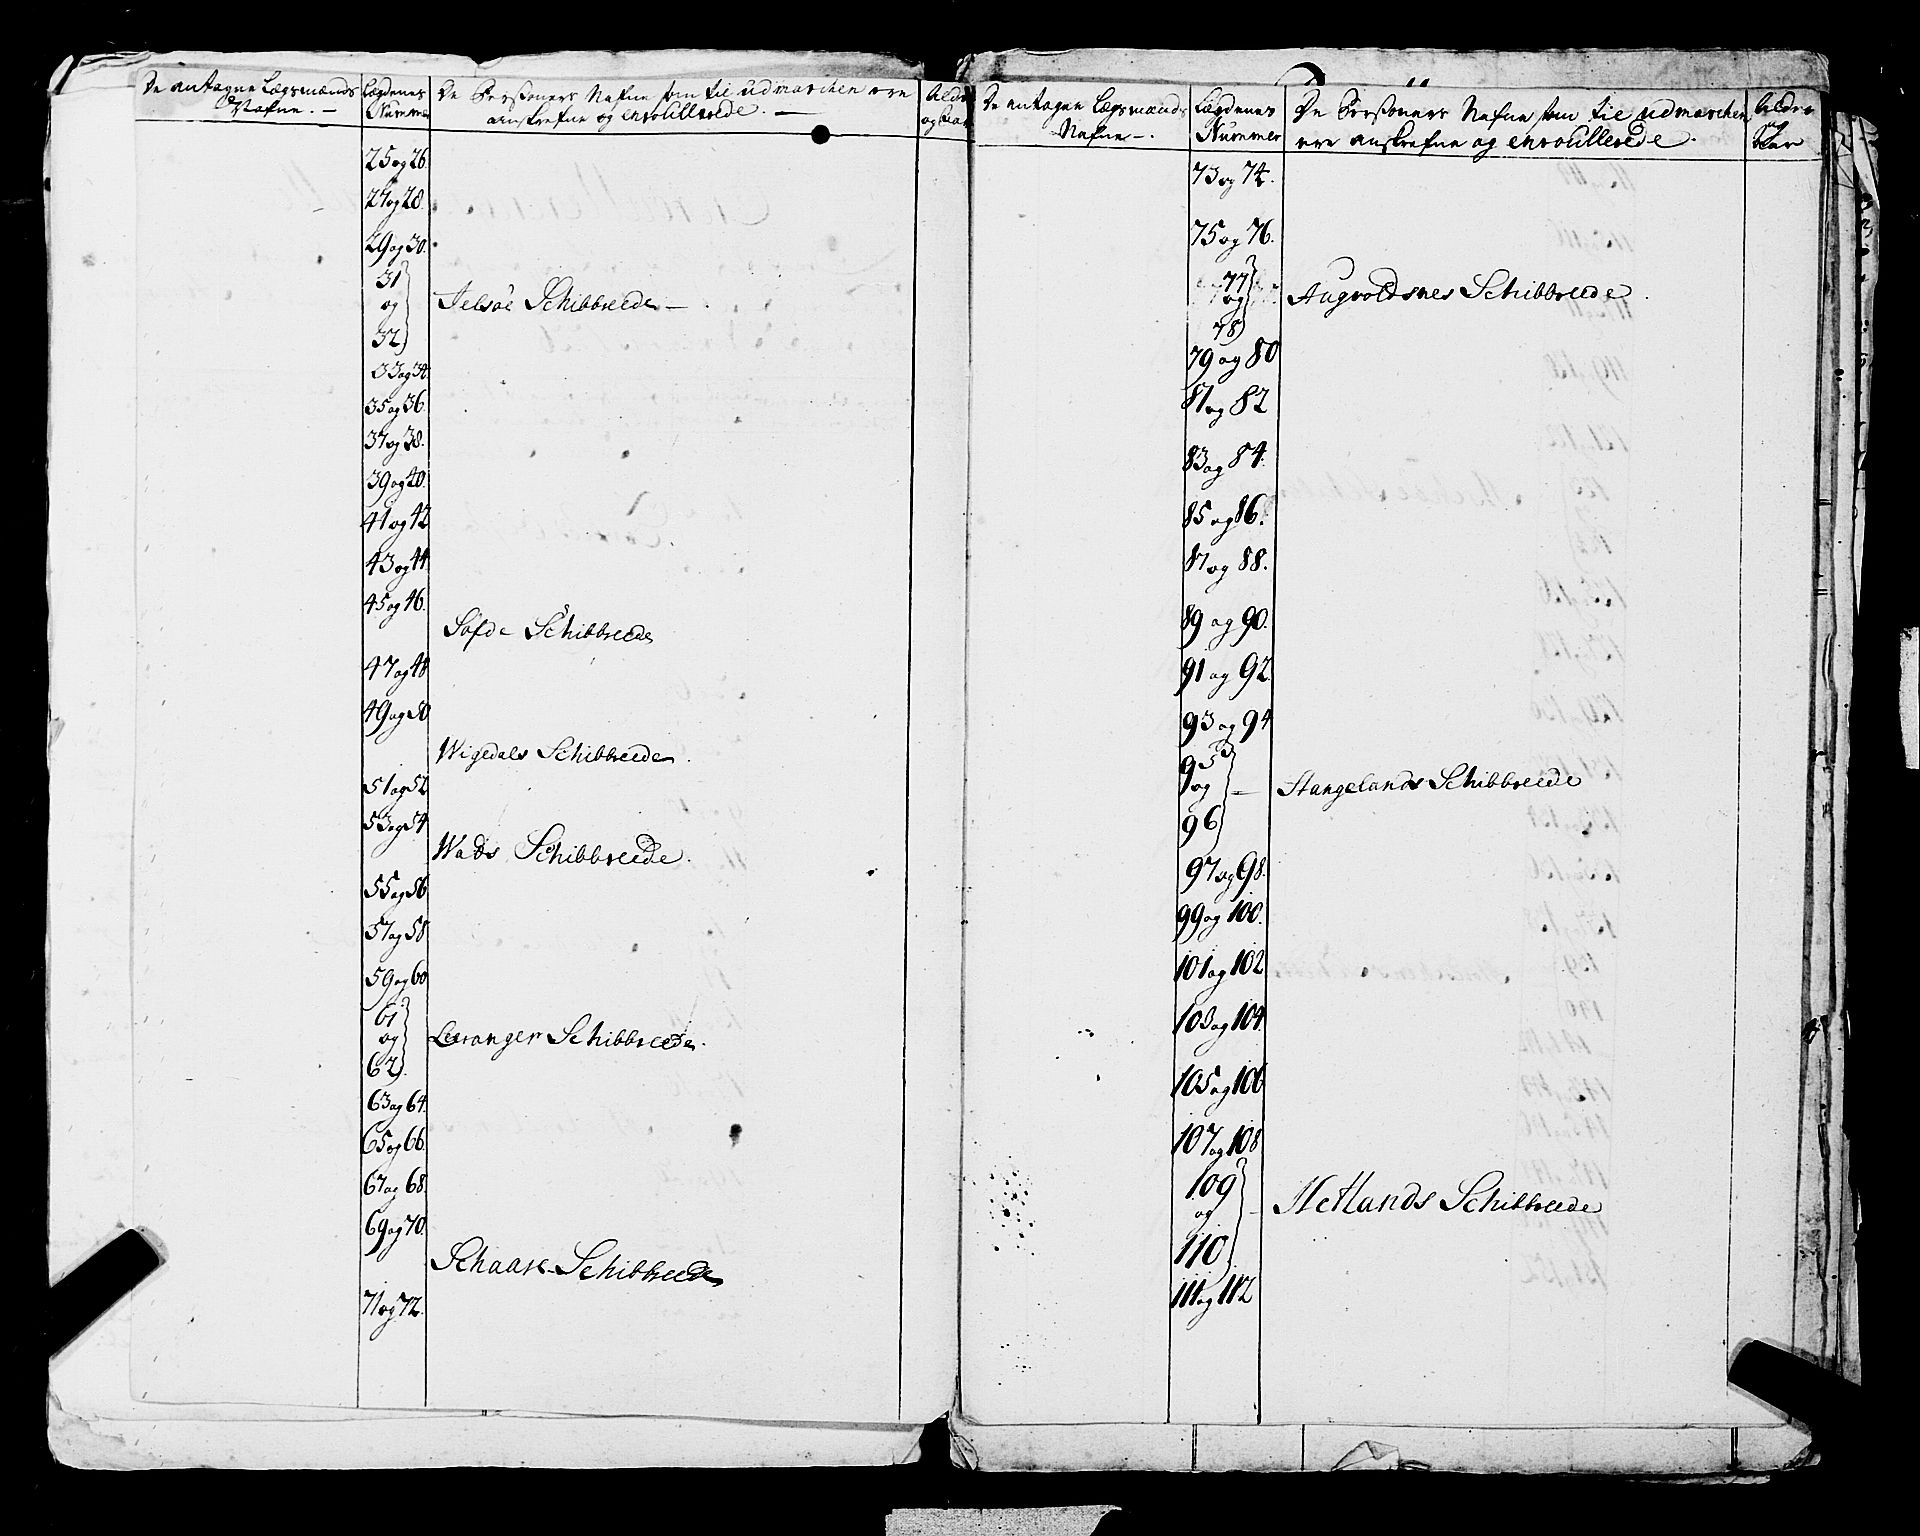 De antagne Lægsmænds
Nafne. —
Lægdenes
Nummer
De Persohners Nafne som til udmarschen ere
anskrefne og enroullerede. —
Alder
og
25 og 26.
27 og 28.
29 og 30.
31
og
32
Jelsöe Schibbreede —
33 og 34.
35 og 36.
37 og 38.
39 og 40.
41 og 42
43 og 44
45 og 46.
Sofde Schibbreede
47 og 48
49 og 50
Wigedals Schibbreede.
51 og 52
53 og 54
Wads Schibbreede.
55 og 56
57 og 58
59 og 60
61
og
62
Leranger Schibbreede.
63 og 64.
65 og 66.
67 og 68.
69 og 70.
Schaare Schibbreede
71 og 72.
De antagne Lægsmænds
Nafne —.
Lægdenes
Nummer
De Persohners Nafne som til udmarschen
ere anskrefne og enroullerede.
Alder
og
73 og 74.
75 og 76.
77
og
78
Augvoldsnes Schibbreede.
79 og 80
81 og 82
83 og 84.
85 og 86.
87 og 88.
89 og 90.
91 og 92.
93 og 94
95
og
96
— Stangelands Schibbreede
97 og 98.
99 og 100.
101 og 102
103 og 104
105 og 106
107 og 108
109
og
110
Hetlands Schibbreede
111 og 112